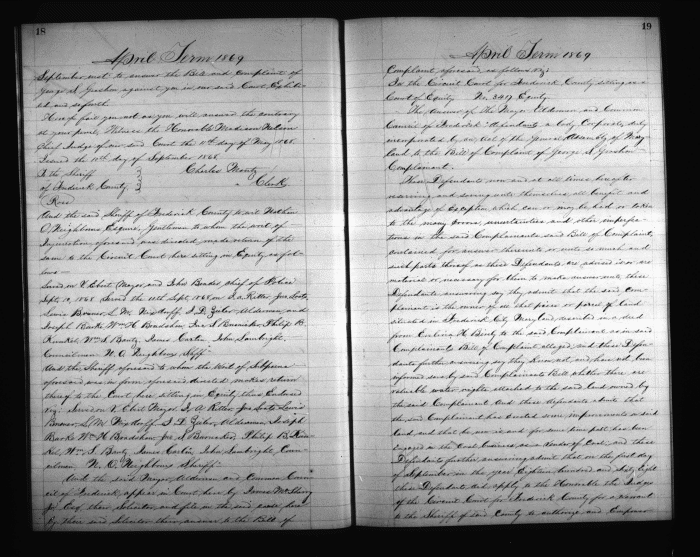 18
April Term 1869
September next to answer the Bill and Complaint of
George S. Groshon against you in our said Court Exhibi-
ted and so forth
Hereof fail you not as you will answer the contrary
at your peril, Witness the Honorable Madison Nelson
Chief Judge of our said Court the 10th day of May 1868
Issued the 10th day of September 1868
To the Sheriff } Charles Mantz
of Frederick County } Clerk
And the said Sheriff of Frederick County to wit Nathan
O. Neighbours Esquire, Gentleman to whom the writ of
Injunction aforesaid was directed makes return of the
same to the Circuit Court here sitting in Equity as fol-
lows
Served on V. Ebert Mayor and John Beake chief of Police
Sept. 10, 1868 Served the 11th Sept. 1868 on J. A. Ritter Jos. Lontz
Lewis Bruner L. M. Nixdorff, S. D. Zuber, Alderman, and
Joseph Barks Wm H. Bradshaw Jos. S. Philip B.
Kunkel, Wm S. Bantz James Carlin, John Lambright,
Councilman N. O. Neighbors Shff.
And the Sheriff aforesaid to whom the Writ of Subpoena
aforesaid was in form aforesaid directed makes return
thereof to the Court here sitting in Equity thus Endorsed
viz: Served on V. Ebert Mayor J. A. Ritter Jos. Lontz Lewis
Bruner L. M. Nixdorff, S. D. Zuber, Alderman Joseph
Barks Wm H. Bradshaw Jos. S. Philip B. Kun-
kel, Wm. S. Bantz James Carlin, John Lambright, Coun-
cilman N. O. Neighbours Sheriff
And the said Mayor, Alderman and Common Coun-
cil of Frederick, appear in Court here by James McSherry
Jr. Esq. their Solicitor and file in the said cause here
by their said Solicitor their answer to the Bill of
19
April Term 1869
Complaint aforesaid as follows viz:
In the Circuit Court for Frederick County sitting as a
Court of Equity No. 3417 Equity
The Answer of The Mayor Aldermen and Common
Council of Frederick Defendants a body Corporate, duly
incorporated by an Act of the General Assembly of Mary-
land to the Bill of Complaint of George S. Groshon
Complainant.
These Defendants now and at all times hereafter
reserving and saving unto themselves, all benefit and
advantage of Exception which can or may be had or taken
to the many errors, uncertainties and other imperfec-
tions in the said Complainants said Bill of Complaint,
contained, for answer thereunto or unto so much and
such parts thereof as these Defendants are advised is or are
material or necessary for them to make answer unto, these
Defendants answering say, they admit that the said Com-
plainant is the owner of all that piece or parcel of land
situated in Frederick City Maryland, recited in a deed
from H. Bantz to the said Complainant as in said
Complainants Bill of Complaint alleged and these Defen-
dants further answering say they know not, and have not been
informed save by said Complainants Bill whether there are
valuable water rights attached to the said land owned by
the said Complainant And these defendants admit that
the said Complainant has erected some improvements on said
land and that he now is and for some time past has been
engaged in the Coal business as a Vender of Coal, and these
Defendants further answering admit that on the first day
of September in the year Eighteen hundred and Sixty Eight
these Defendants did apply to the Honorable the Judges
of the Circuit Court for Frederick County for a warrant
to the Sheriff of said County to authorize and Empower